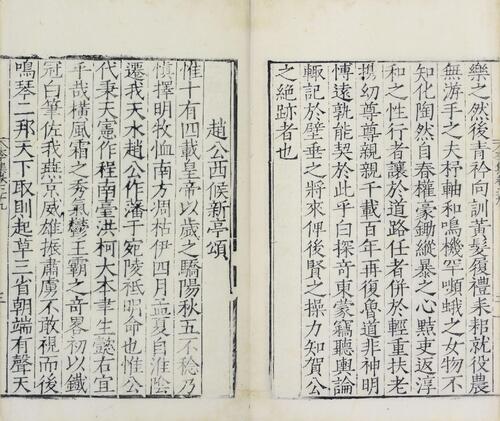 樂之然後青衿向訓黃髮履禮耒耜就役農
無游手之夫杼軸和鳴機罕嚬蛾之女物不
知化陶然自春權豪鋤縱暴之心黠吏返淳
和之性行者讓於道路任者併於輕重扶老
攜幼尊尊親親千載百年再復魯道非神明
博遠孰能契於此乎白探奇東蒙竊聽輿論
輙記於壁垂之將來俾後賢之操刀知賀公
之絶跡者也
趙公西候新亭頌
惟十有四載皇帝以歲之驕陽秋五不稔乃
慎擇明牧恤南方凋枯伊四月孟夏自淮陰
遷我天水趙公作藩于宛陵祗明命也惟公
代秉天憲作程南臺洪柯大本聿生懿右宜
乎哉橫風霜之秀氣鬱王霸之奇略初以鐵
冠白筆佐我燕京威雄振肅虜不敢視而後
鳴琴二邦天下取則起草三省朝端有聲天